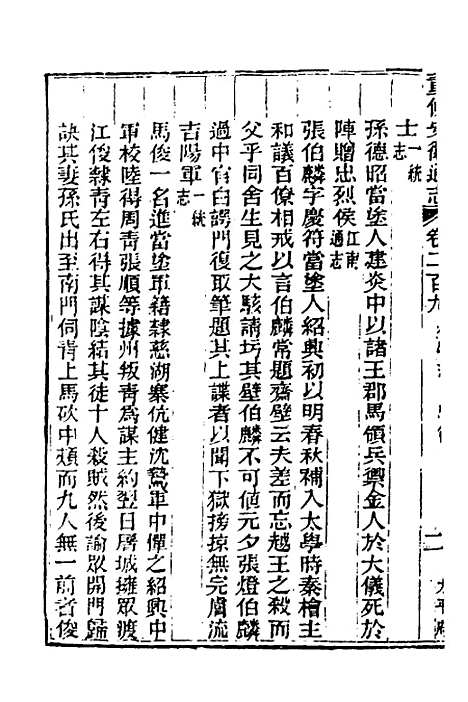 士一統志
孫德昭當塗人建炎中以諸王郡馬領兵禦金人於大儀死於
陣贈忠烈侯江南通志
張伯麟字慶符當塗人紹興初以明春秋補入太學時秦檜主
和議百僚相戒以言伯麟常題齋壁云夫差而忘越王之殺而
父乎同舍生見之大駭請圬其壁伯麟不可値元夕張燈伯麟
過中官白諤門復取筆題其上諜者以聞下獄搒掠無完膚流
吉陽軍一統志
馬俊一名進當塗軍籍隸慈湖寨伉健沈鷙軍中憚之紹興中
軍校陸得周青張順等據州叛青為謀主約翌日屠城擁眾渡
江俊隸青左右得其謀陰結其徒十人殺賊然後諭眾開門歸
訣其妻孫氏出至南門伺青上馬砍中頰而九人無一前者俊
重修安徽通志 卷二百九
二